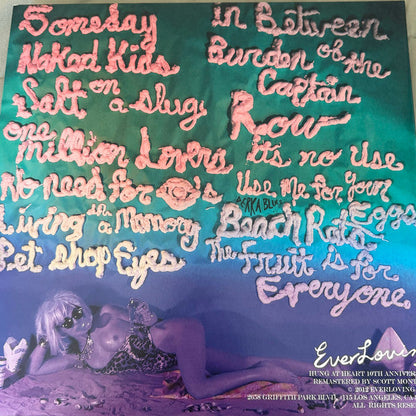 Someday
Naked Kids
Salt on a Slug
one Million Lovers
No Need for 👁's
Living in a Memory
Pet Shop Eyes
in Between
Burden of the
Captain
Row
it's no Use
Use Me for Your
Eggs
Beach Rats
The Fruit is for
Everyone
EverLovin
HUNG AT HEART 10TH ANNIVER
REMASTERED BY SCOTT MON
© 2012 EVERLOVING
2658 GRIFFITH PARK BLVD. #115 LOS ANGELES, CA
ALL RIGHTS RESE